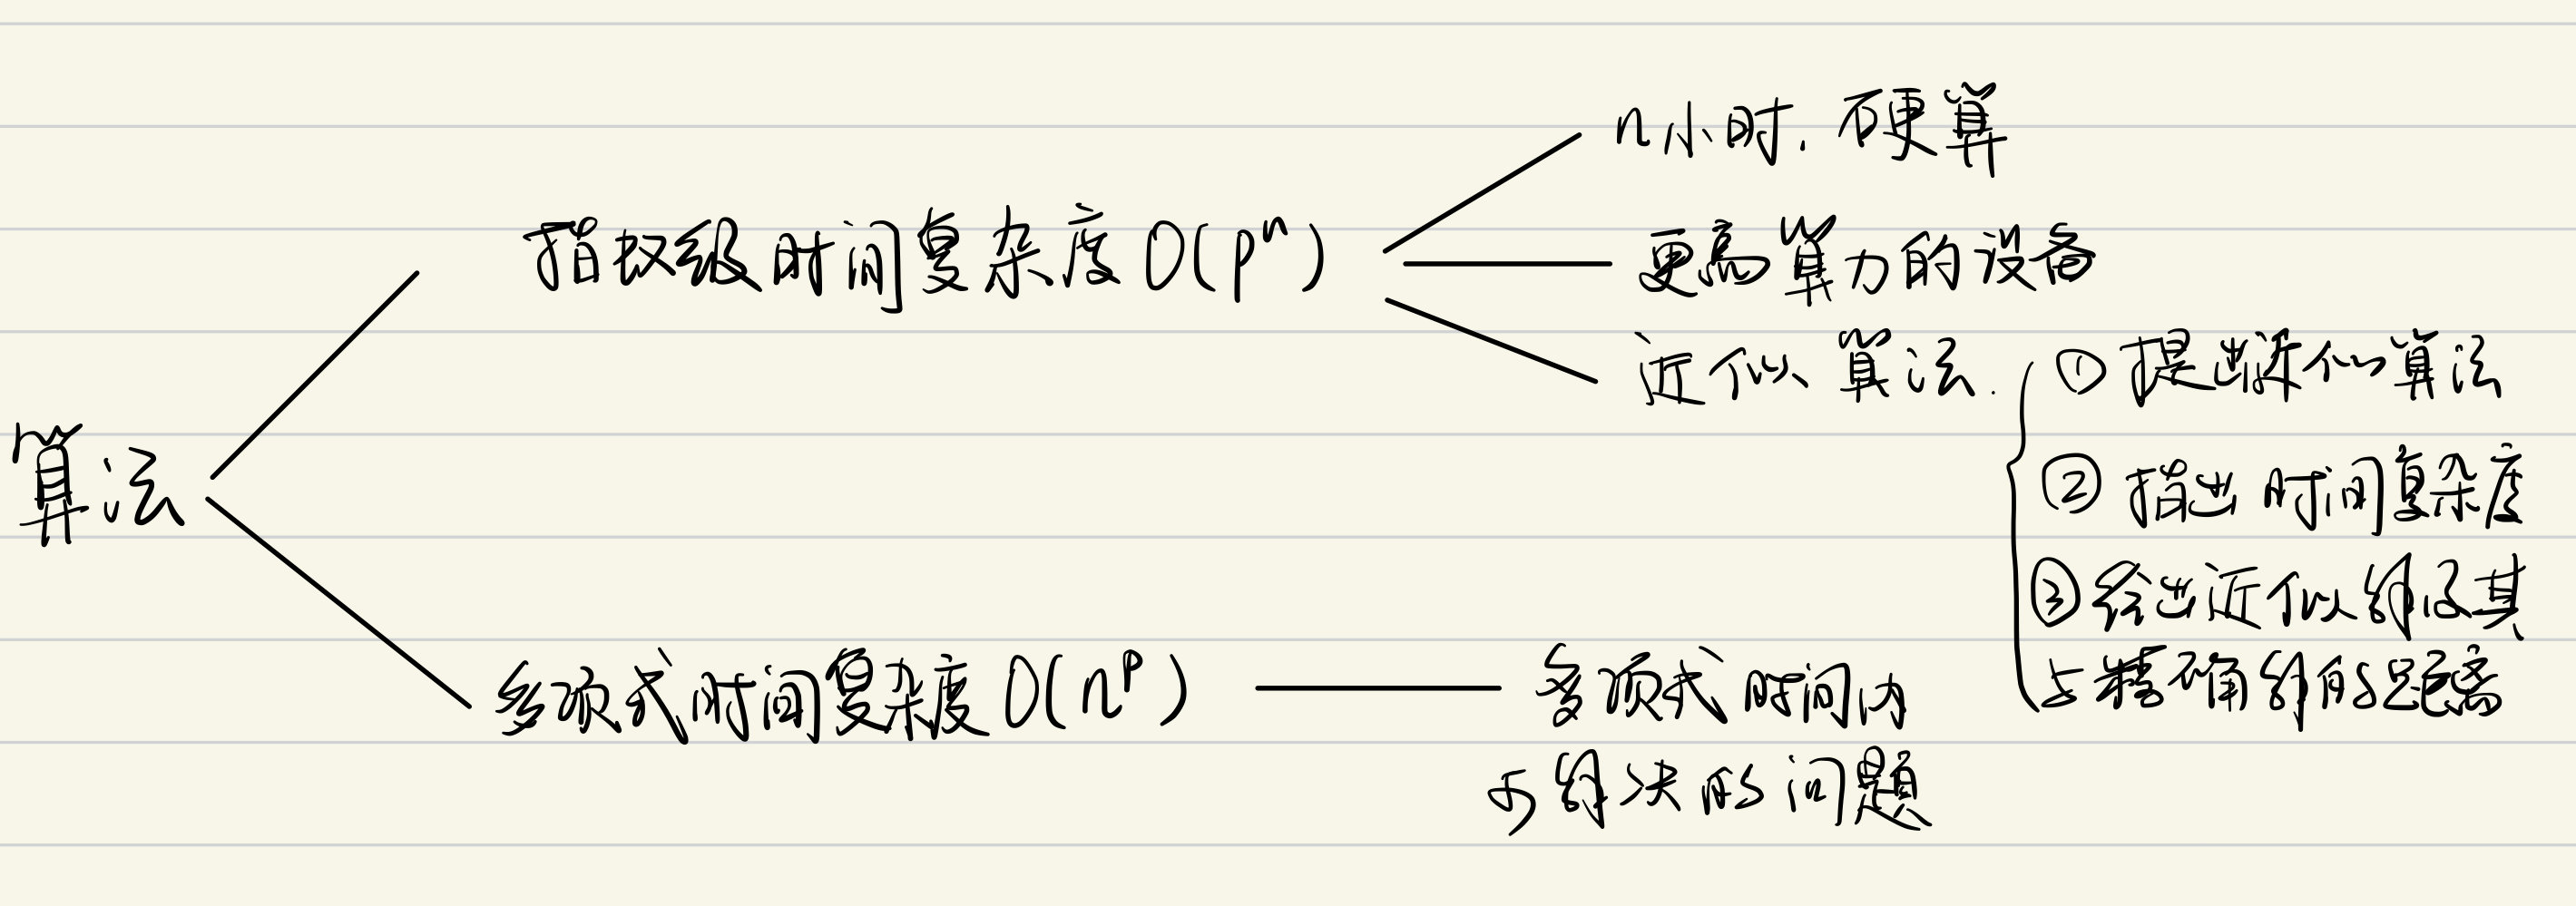 算法
指数级时间复杂度 O(pⁿ)
n小时,硬算
更高算力的设备
近似算法.
① 提出近似算法
② 指出时间复杂度
③ 给出近似解及其
与精确解的距离
多项式时间复杂度 O(nᵖ)
多项式时间内
可解决的问题